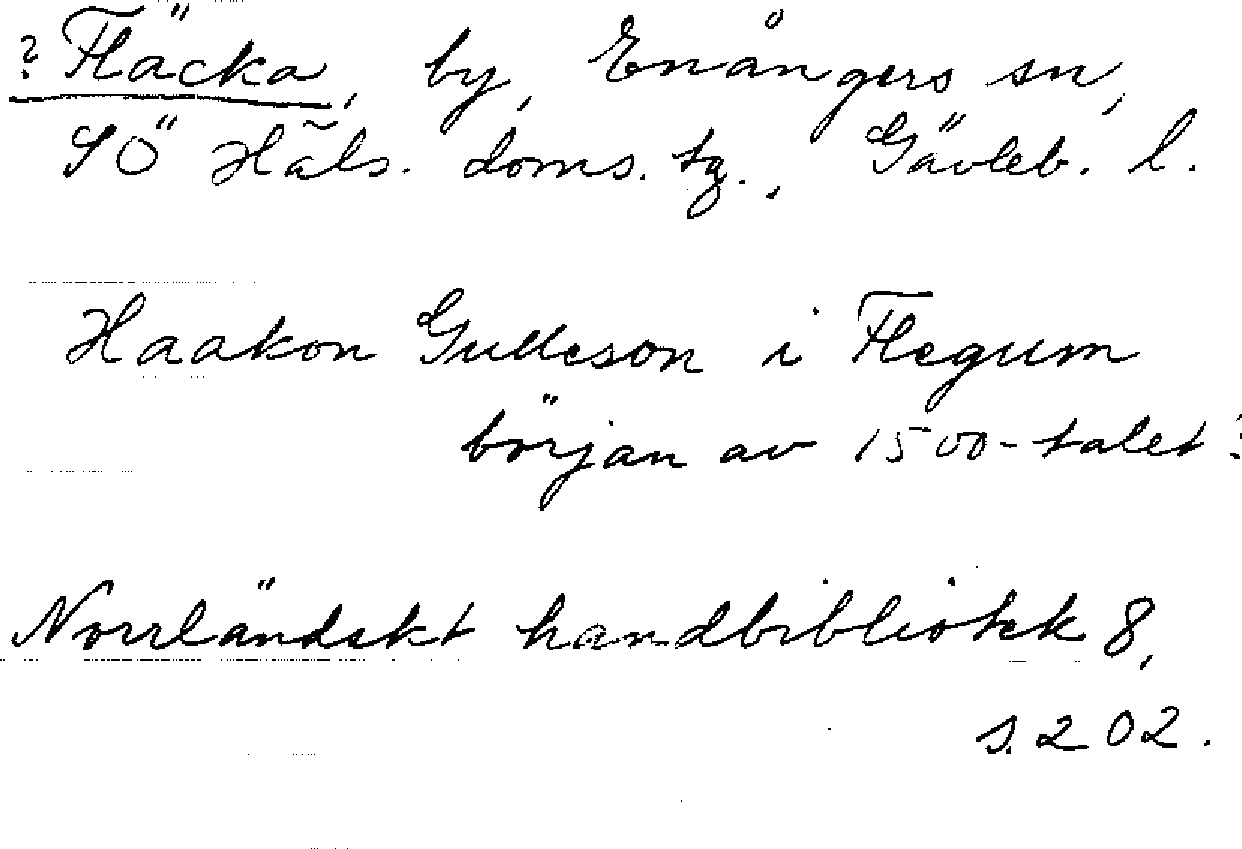 ? Fläcka, by, Enångers sn,
SÖ Häls. doms. tg., Gävleb. l.
Haakon Gulleson i Flegum
början av 1500-talet:
Norrländskt handbibliotek 8,
s. 202.